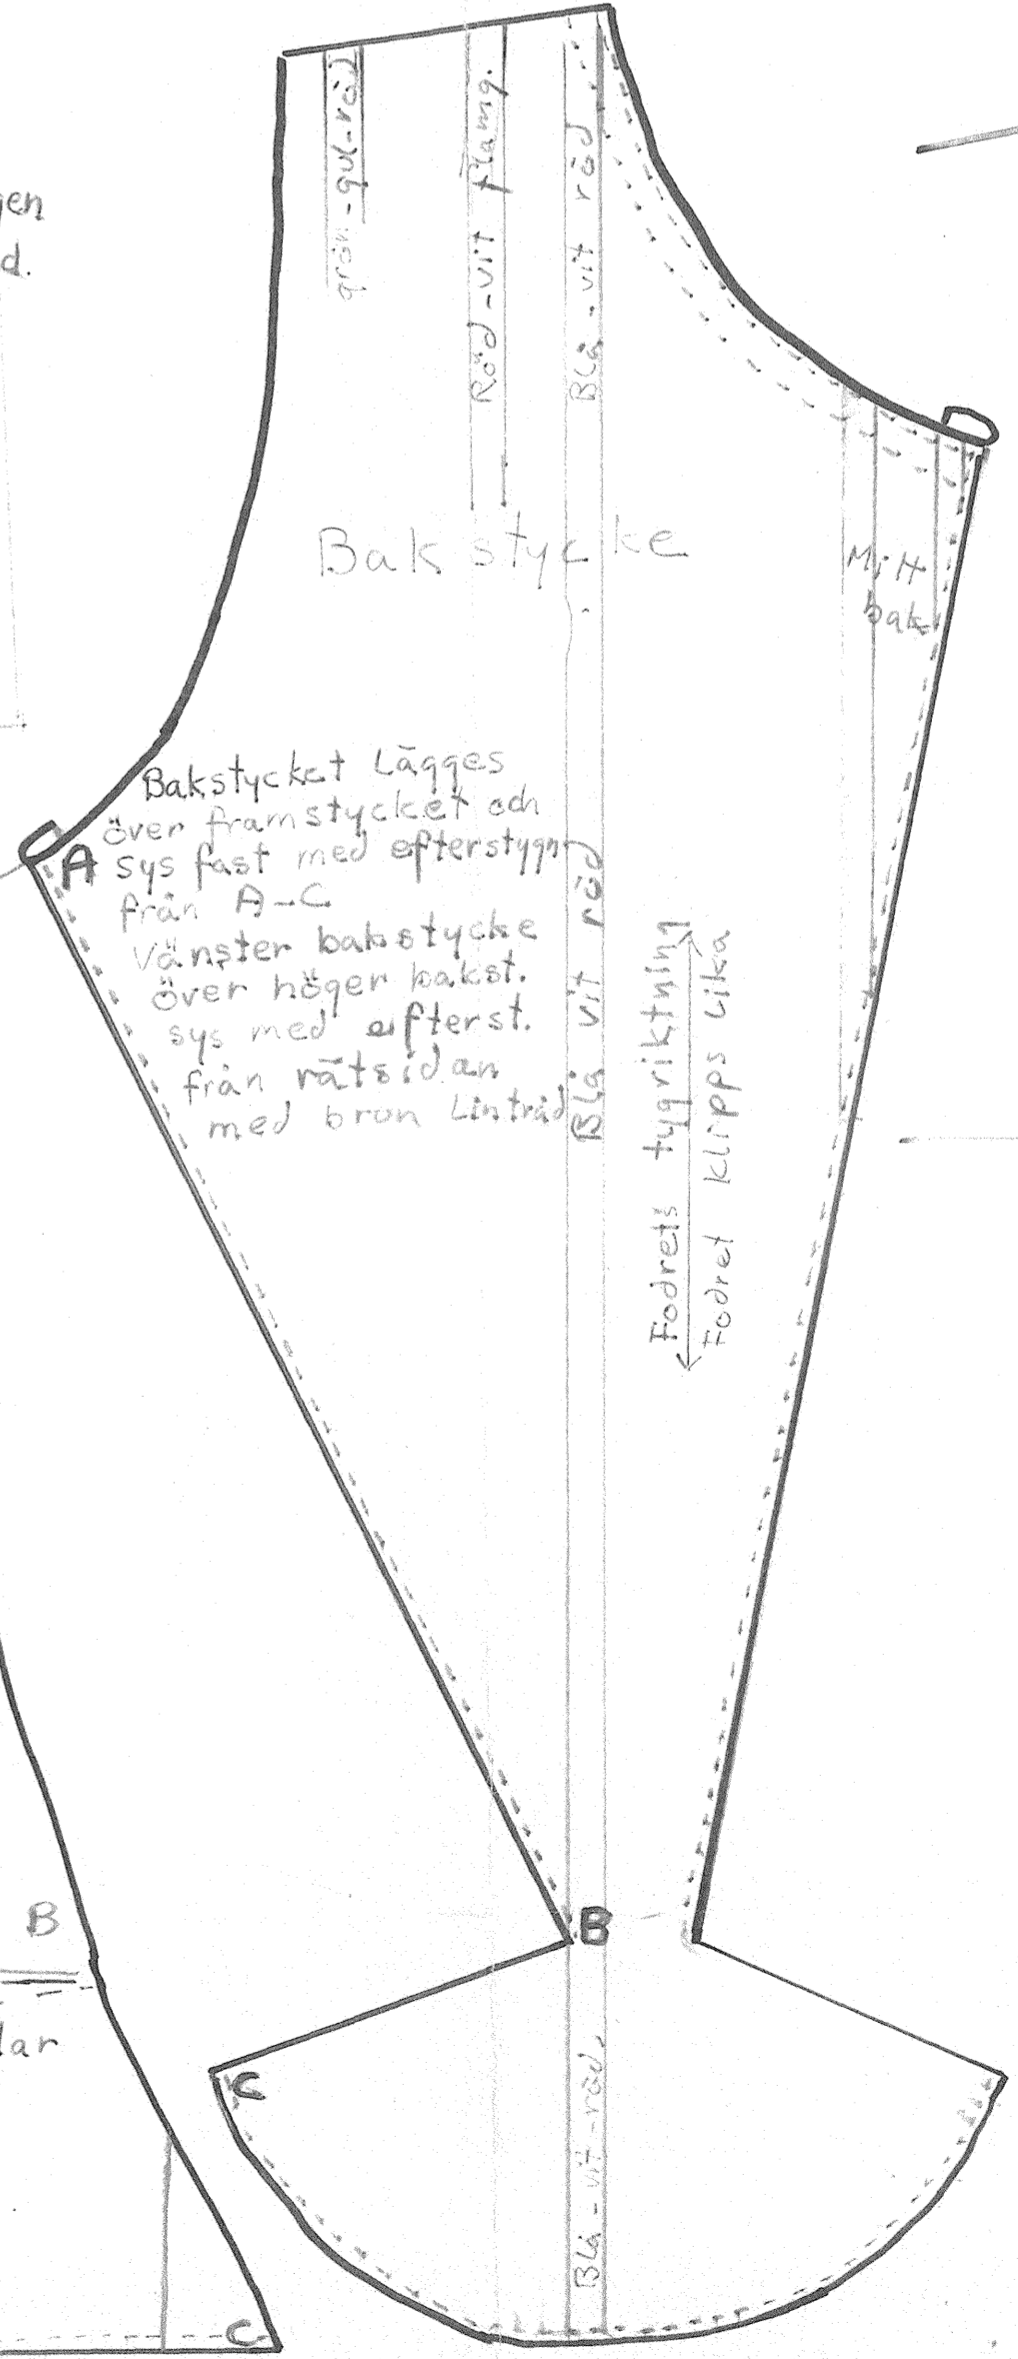 gen
d.
grön-gul-röd
Röd-vit flamg.
Blå-vit röd
Bakstycke
Mitt
bak
Bakstycket Lägges
över framstycket och
A sys fast med efterstygn
från A-C
vänster bakstycke
över höger bakst.
sys med efterst.
från rätsidan
med brun Lintråd
Blå vit röd
Fodrets tygriktning
Fodret klipps lika
B
B
lar
C
Blå-vit-röd
C